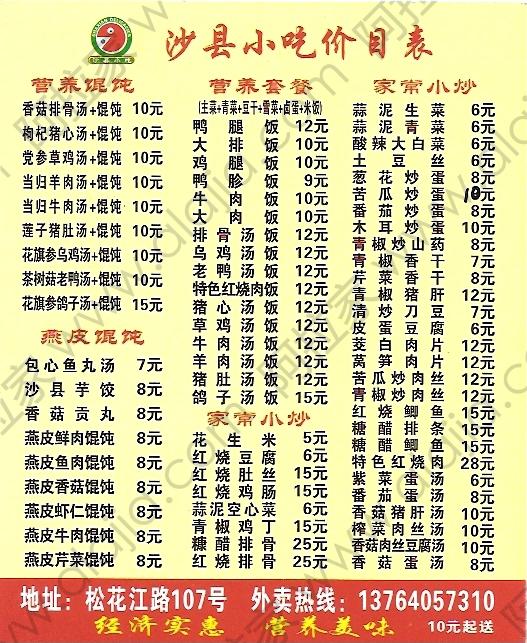 沙县小吃
沙县小吃价目表
营养馄饨
香菇排骨汤+馄饨 10元
枸杞猪心汤+馄饨 10元
党参草鸡汤+馄饨 10元
当归羊肉汤+馄饨 10元
当归牛肉汤+馄饨 10元
莲子猪肚汤+馄饨 10元
花旗参乌鸡汤+馄饨 10元
茶树菇老鸭汤+馄饨 10元
花旗参鸽子汤+馄饨 15元
燕皮馄饨
包心鱼丸汤 7元
沙县芋饺 8元
香菇贡丸 8元
燕皮鲜肉馄饨 8元
燕皮鱼肉馄饨 8元
燕皮香菇馄饨 8元
燕皮虾仁馄饨 8元
燕皮牛肉馄饨 8元
燕皮芹菜馄饨 8元
营养套餐
(主菜+青菜+豆干+雪菜+卤蛋+米饭)
鸭腿饭 12元
大排饭 10元
鸡腿饭 10元
鸭胗饭 9元
牛肉饭 10元
大肉饭 10元
排骨汤饭 12元
乌鸡汤饭 12元
老鸭汤饭 12元
特色红烧肉饭 12元
猪心汤饭 12元
草鸡汤饭 12元
牛肉汤饭 12元
羊肉汤饭 12元
猪肚汤饭 12元
鸽子汤饭 15元
家常小炒
花生米 5元
红烧豆腐 6元
红烧肚丝 15元
红烧鸡肠 15元
蒜泥空心菜 6元
青椒鸡丁 15元
糖醋排骨 25元
红烧排骨 25元
家常小炒
蒜泥生菜 6元
蒜泥青菜 6元
酸辣大白菜 6元
土豆丝 6元
葱花炒蛋 8元
苦瓜炒蛋 10元
番茄炒蛋 8元
木耳炒蛋 10元
青椒炒山药 8元
青椒香干 7元
芹菜香干 8元
青椒猪肝 12元
清炒刀豆 7元
皮蛋豆腐 6元
茭白肉片 12元
莴笋肉片 12元
苦瓜炒肉丝 12元
青椒炒肉丝 12元
红烧鲫鱼 15元
糖醋排条 15元
糖醋鲫鱼 15元
特色红烧肉 28元
紫菜蛋汤 6元
番茄蛋汤 8元
香菇猪肝汤 10元
榨菜肉丝汤 10元
香菇肉丝豆腐汤 10元
地址：松花江路107号 外卖热线：13764057310
经济实惠 营养美味 10元起送